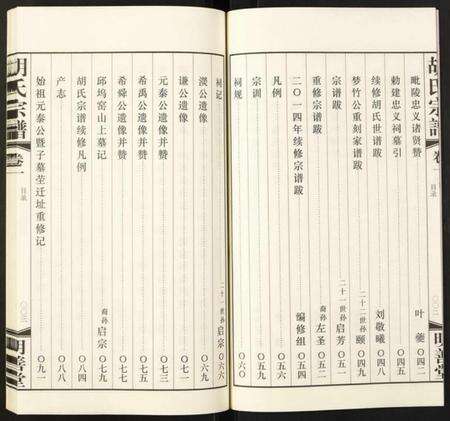 胡氏宗譜 卷一 目录 〇〇三 明善堂
毗陵忠义诸贤赞 叶夔
敕建忠义祠墓引 〇四五
续修胡氏世谱跋 刘敬曦 〇四八
梦竹公重刻家谱跋 二十一世孙 颐 〇四九
宗谱跋 二十一世孙 启芳 〇五一
重修宗谱跋 裔孙 左圣 〇五二
二〇一四年续修宗谱跋 编修组 〇五四
凡例
宗训 〇五九
祠规 〇六〇
祠记 二十一世孙 启宗 〇六六
濙公遗像 〇六九
谦公遗像 〇七一
元泰公遗像并赞 〇七三
希禹公遗像并赞 〇七五
希舜公遗像并赞 〇七七
邱坞窑山上墓记 裔孙 启宗
胡氏宗谱续修凡例 〇八四
产志 〇八八
始祖元泰公暨子墓茔迁址重修记 〇九一
胡氏宗譜 卷一 目录 〇〇三 明善堂